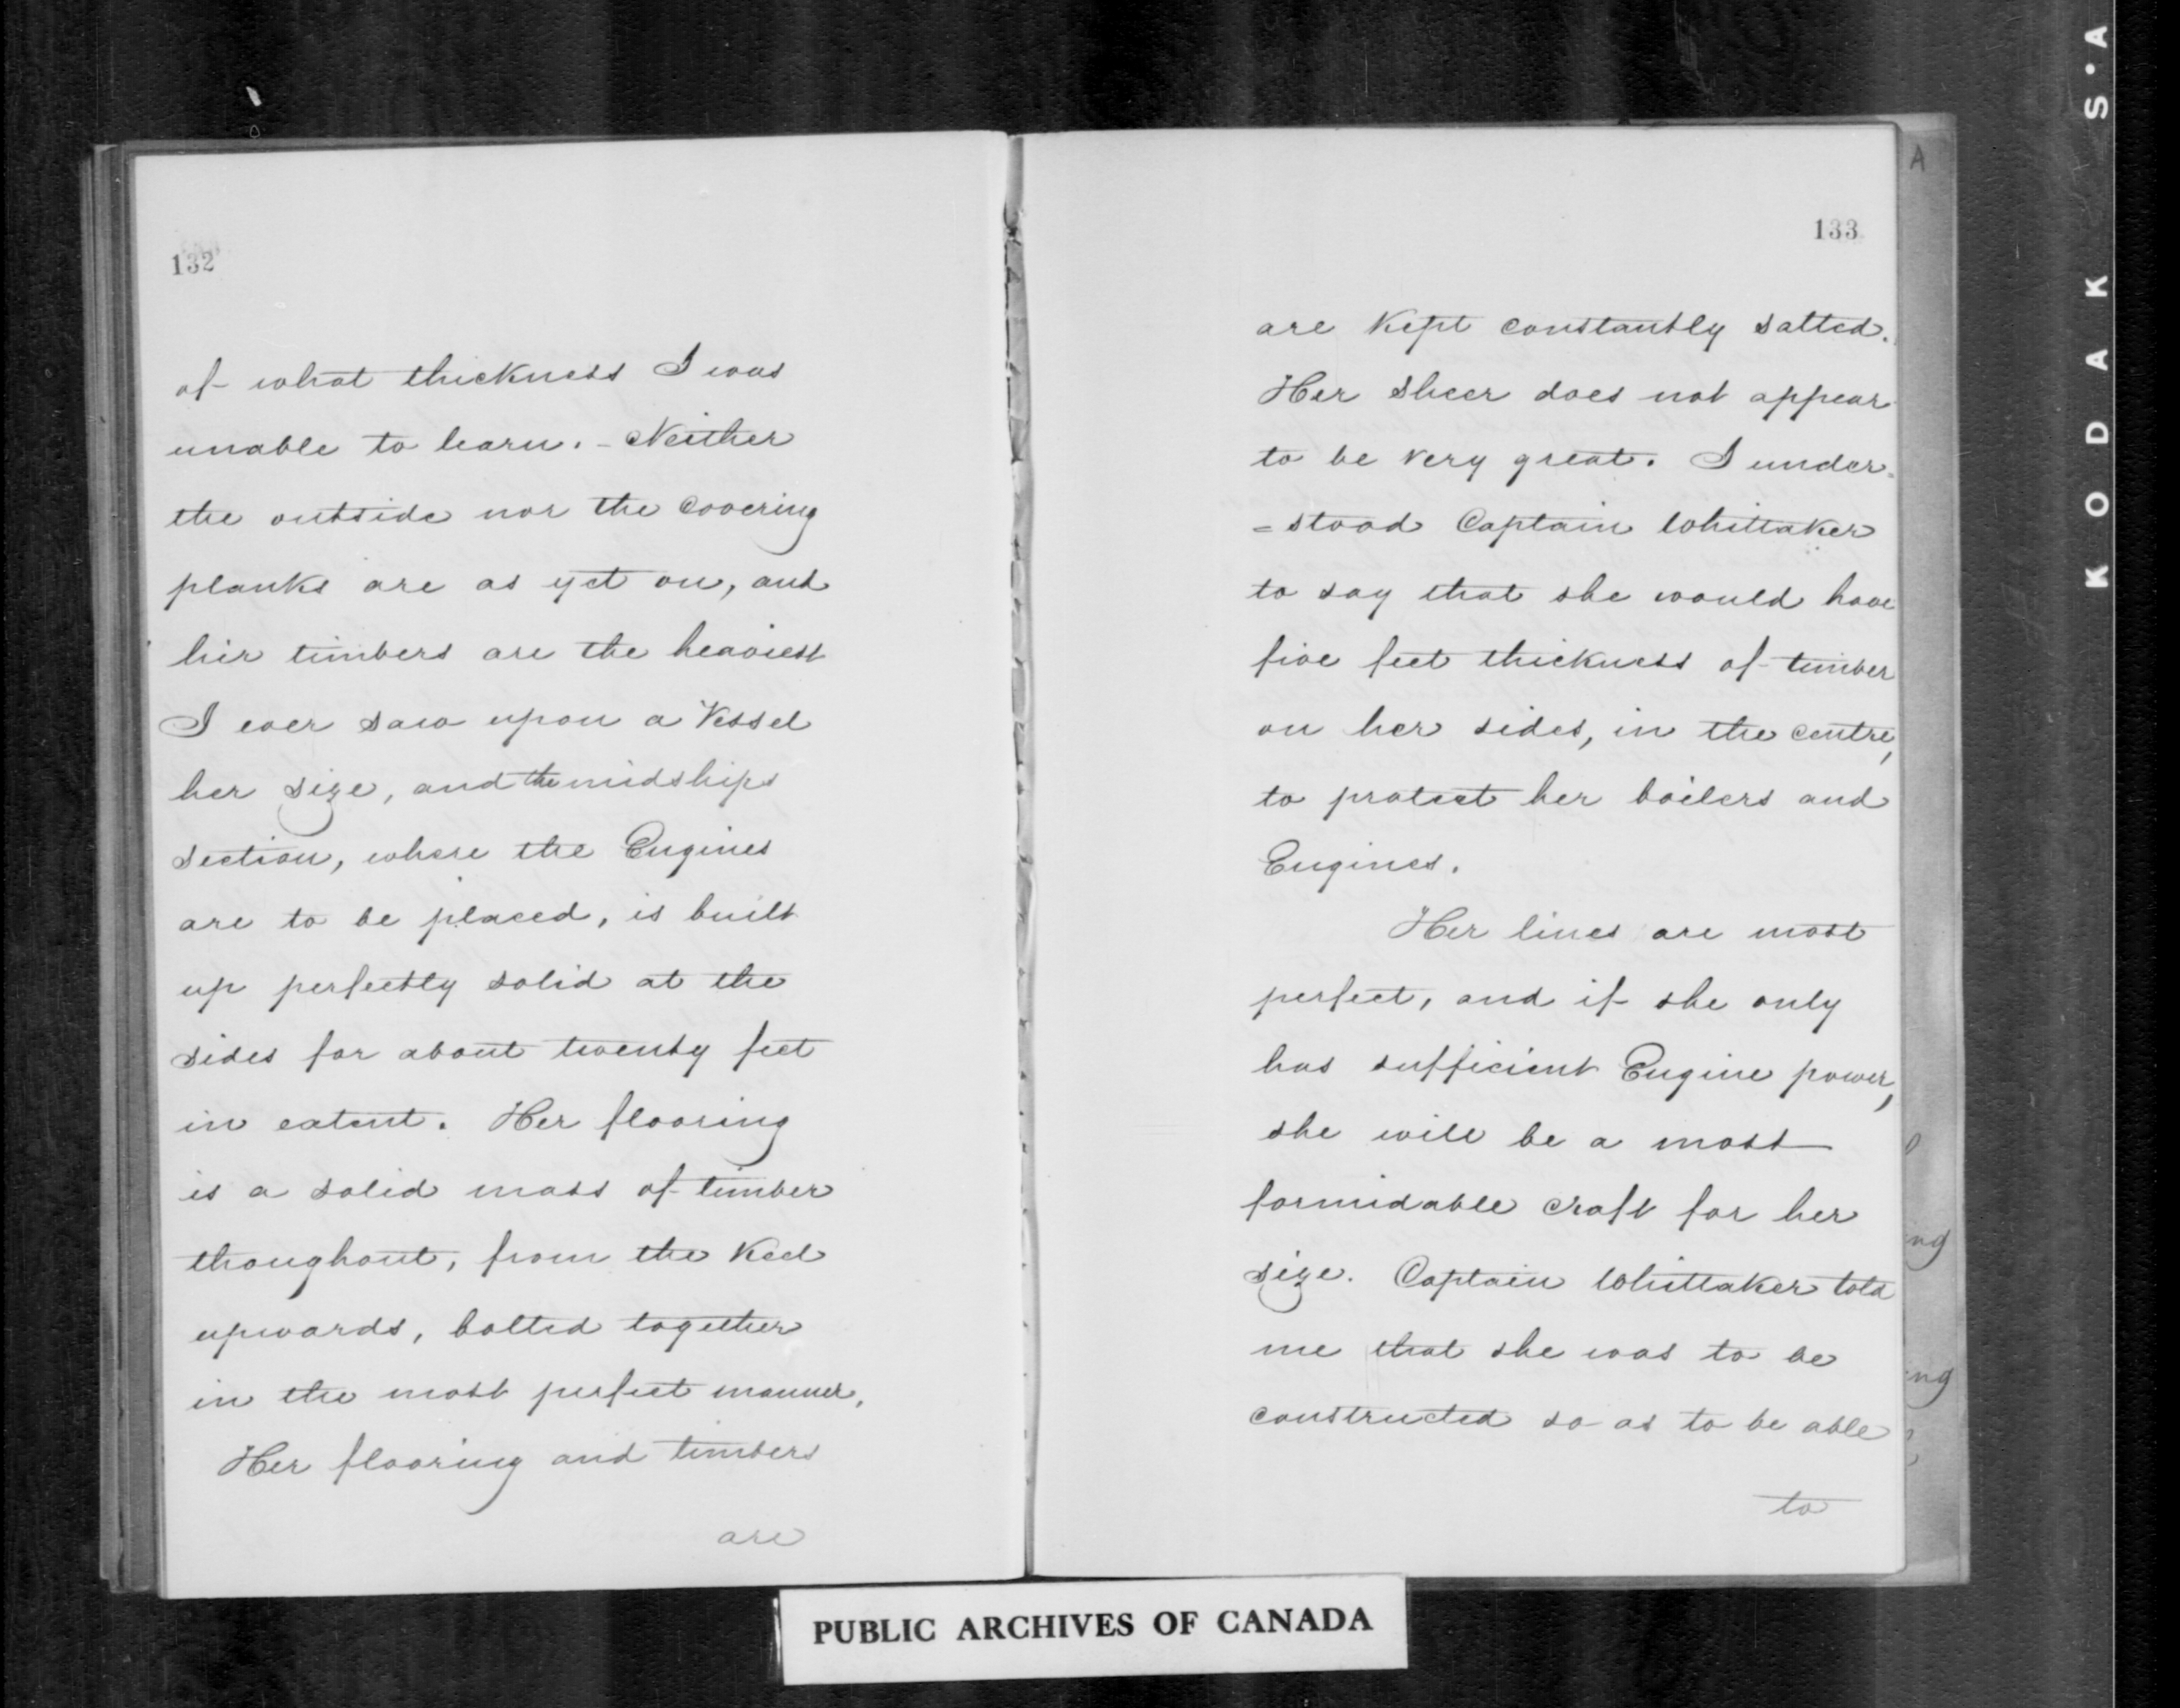 132
of what thickness I was
unable to learn. - Neither
the outside nor the covering
planks are as yet on, and
her timbers are the heaviest
I ever saw upon a Vessel
her size, and the midships
section, where the Engines
are to be placed, is built
up perfectly solid at the
sides for about twenty feet
in extent. Her flooring
is a solid mass of timber
thoughout, from the Keel
upwards, bolted together
in the most perfect manner.
Her flooring and timbers
are
133
are Kept constantly salted.
Her sheer does not appear
to be very great. I under=
=stood Captain Whittaker
to say that she would have
five feet thickness of timber
on her sides, in the centre,
to protect her boilers and
Engines.
Her lines are most
perfect, and if she only
has sufficient Engine power,
she will be a most
formidable craft for her
size. Captain Whittaker told
me that she was to be
constructed so as to be able
to
A
ng
ng
PUBLIC ARCHIVES OF CANADA
KODAK S·A